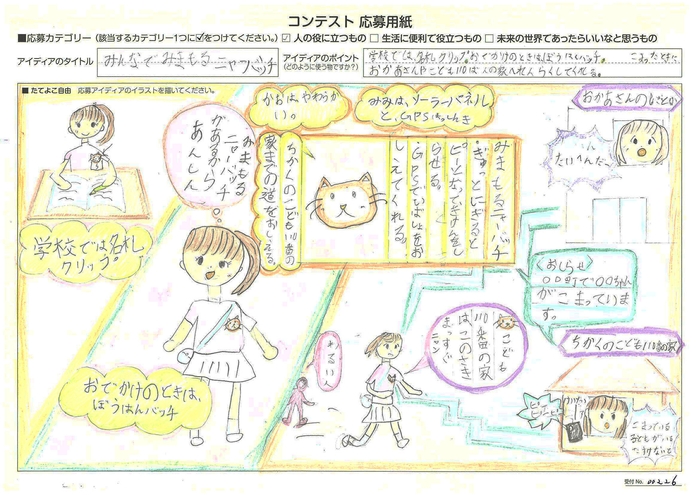 コンテスト 応募用紙
■応募カテゴリー（該当するカテゴリー1つに☑をつけてください。） ☑ 人の役に立つもの □ 生活に便利で役立つもの □ 未来の世界であったらいいなと思うもの
アイディアのタイトル
みんなで みまもる ニャンバッチ
アイディアのポイント
（どのように使う物ですか？）
学校では、名札クリップ。おでかけのときはぼうはんバッチ。 こまったときに
おかあさんやこども110ばん
■たてよこ自由 応募アイディアのイラストを描いてください。
学校では名札
クリップ。
みまもる
ニャンバッチ
があるから
あんしん
おでかけのときは、
ぼうはんバッチ
かおは、やわらか
い。
みみは、ソーラーパネル
と、GPS
みまもるニャンバッチ
・ぎゅっとにぎると
ピーッと
らせる。
・GPSでいばしょをお
しえてくれる。
ちかくのこども110番の
家までの道をおしえる。
おかあさんの
たいへんだ
〈おしらせ〉
〇〇町で〇〇ちゃん
がこまっていま
す。
ちかくのこども110番の家
こども
110番の家
は、このさき
まっすぐ
ニャン
わるい人
こまっている
子どもがいる
受付No. 00226